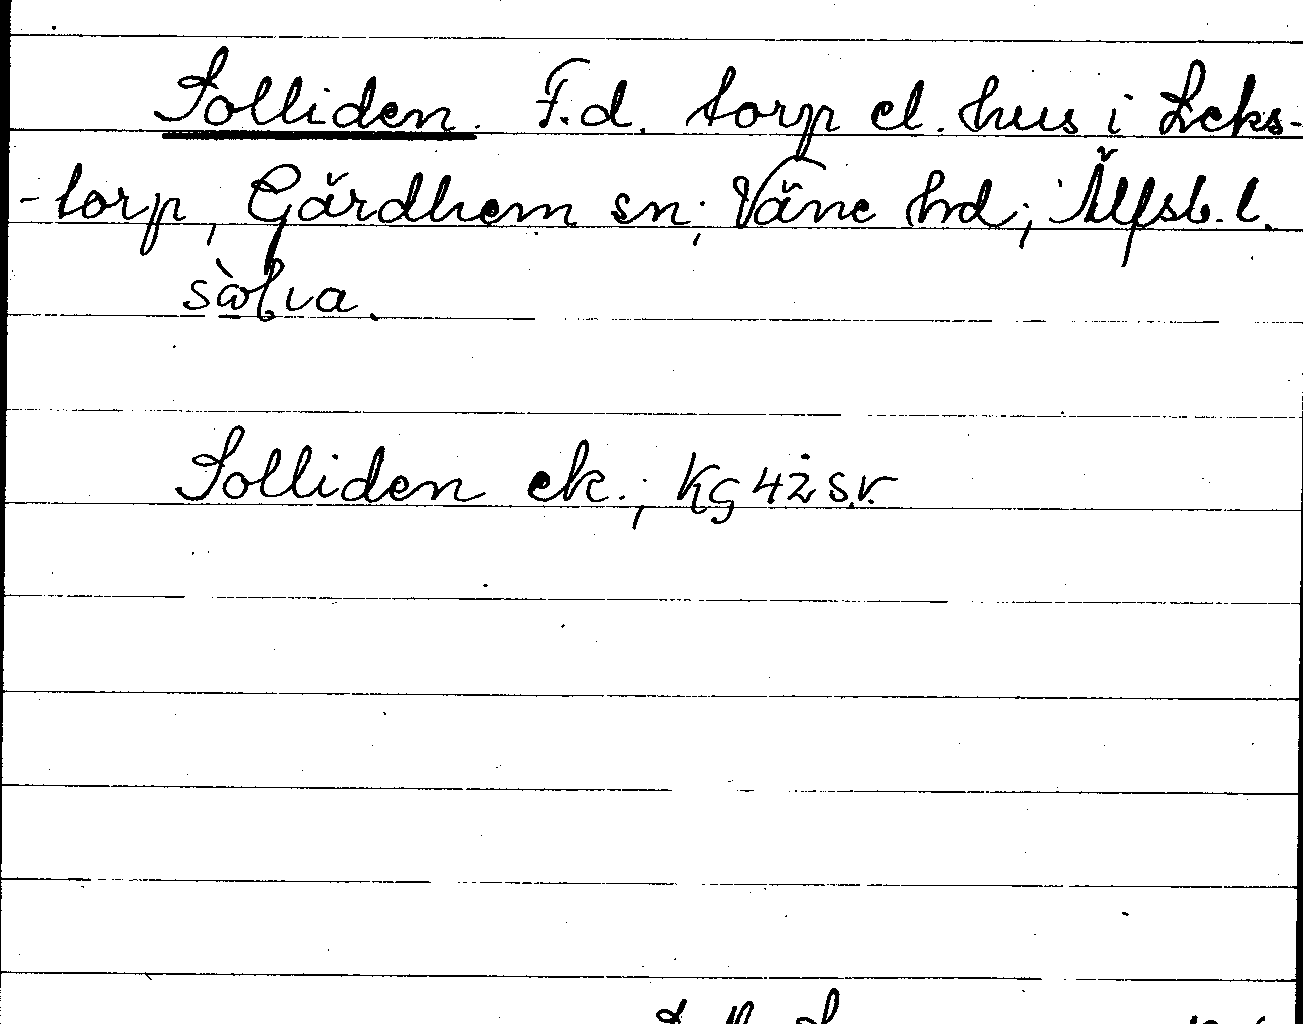 Solliden. F.d. torp el. hus i Leks-
-torp, Gärdhem sn; Väne hd; Älfsb. l.
Solliden ek.; Kg 42 s.v.